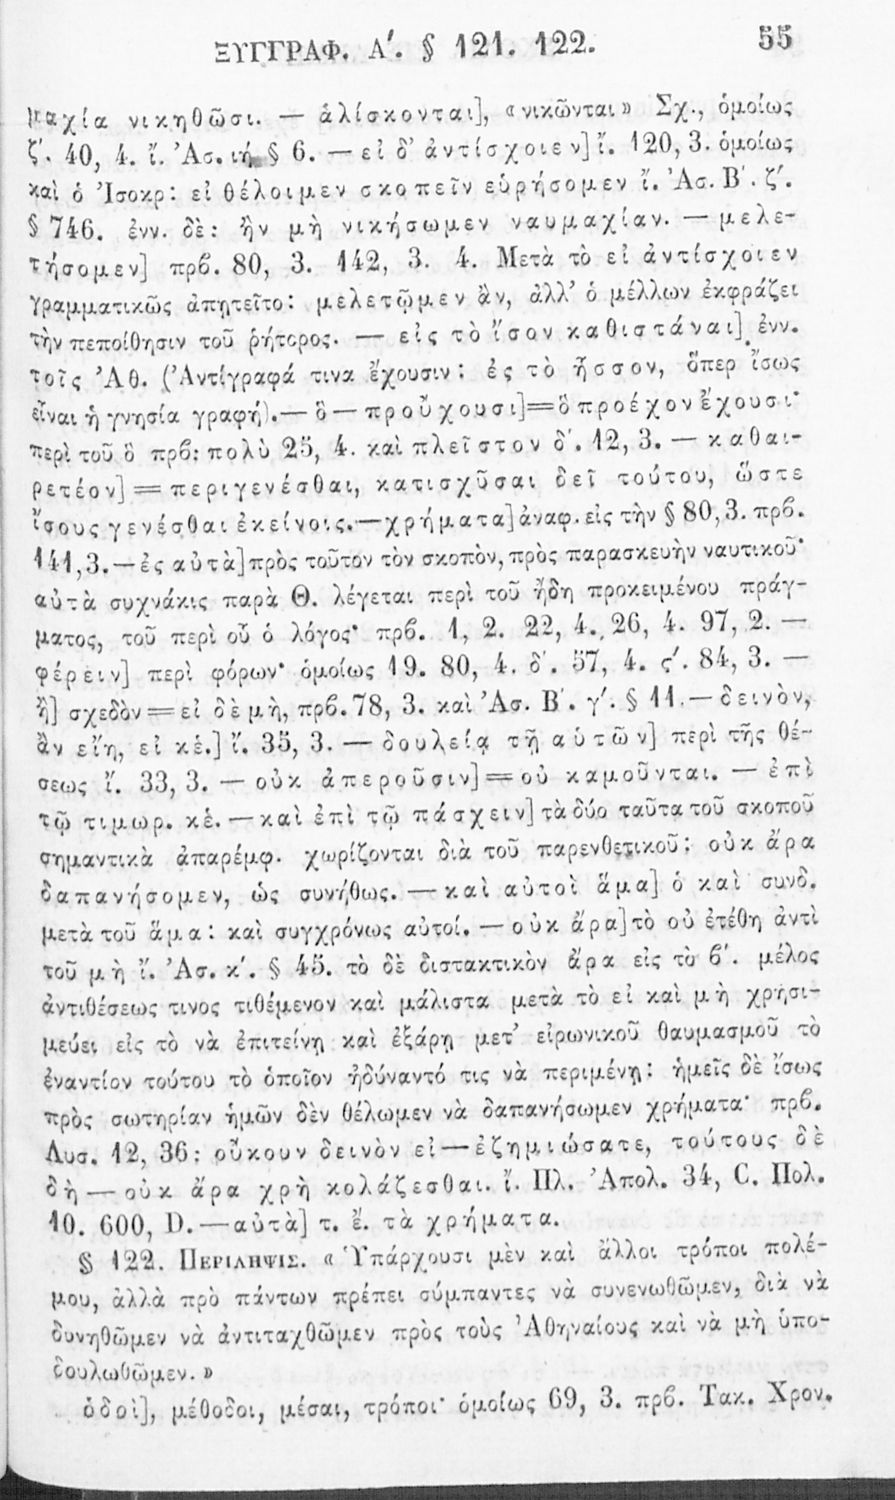 ΞΥΓΓΡΑΦ. Α΄. § 121. 122. 55
μαχία νικηθῶσι. — ἁλίσκονται], «νικῶνται» Σχ., ὁμοίως
ζ΄. 40, 4. ἴ. Ἀσ. ιή § 6. — εἰ δ' ἀντίσχοιεν] ἴ. 120, 3. ὁμοίως
καὶ ὁ Ἰσοκρ: εἰ θέλοιμεν σκοπεῖν εὑρήσομεν ἴ. Ἀσ. Β΄. ζ΄.
§ 746. ἐνν. δὲ: ἢν μὴ νικήσωμεν ναυμαχίαν. — μελε-
τήσομεν] πρβ. 80, 3. 142, 3. 4. Μετὰ τὸ εἰ ἀντίσχοιεν
γραμματικῶς ἀπῃτεῖτο: μελετῷμεν ἂν, ἀλλ' ὁ μέλλων ἐκφράζει
τὴν πεποίθησιν τοῦ ῥήτορος. — εἰς τὸ ἴσον καθιστάναι] ἐνν.
τοῖς Ἀθ. (Ἀντίγραφά τινα ἔχουσιν: ἐς τὸ ἧσσον, ὅπερ ἴσως
εἶναι ἡ γνησία γραφή).— ὃ — προὔχουσι]=ὃ προέχον ἔχουσι·
περὶ τοῦ ὃ πρβ: πολὺ 25, 4. καὶ πλεῖστον δ΄. 12, 3. — καθαι-
ρετέον] = περιγενέσθαι, κατισχῦσαι δεῖ τούτου, ὥστε
ἴσους γενέσθαι ἐκείνοις.—χρήματα] ἀναφ. εἰς τὴν § 80, 3. πρβ.
141, 3.— ἐς αὐτὰ] πρὸς τοῦτον τὸν σκοπὸν, πρὸς παρασκευὴν ναυτικοῦ·
αὐτὰ συχνάκις παρὰ Θ. λέγεται περὶ τοῦ ἤδη προκειμένου πράγ-
ματος, τοῦ περὶ οὗ ὁ λόγος· πρβ. 1, 2. 22, 4. 26, 4. 97, 2. —
φέρειν] περὶ φόρων· ὁμοίως 19. 80, 4. δ΄. 57, 4. ς΄. 84, 3. —
ἢ] σχεδὸν = εἰ δὲ μὴ, πρβ. 78, 3. καὶ Ἀσ. Β΄. γ΄. § 11.— δεινὸν,
ἂν εἴη, εἰ κἑ.] ἴ. 35, 3. — δουλείᾳ τῇ αὑτῶν] περὶ τῆς θέ-
σεως ἴ. 33, 3. — οὐκ ἀπεροῦσιν] = οὐ καμοῦνται. — ἐπὶ
τῷ τιμωρ. κἑ. — καὶ ἐπὶ τῷ πάσχειν] τὰ δύο ταῦτα τοῦ σκοποῦ
σημαντικὰ ἀπαρέμφ. χωρίζονται διὰ τοῦ παρενθετικοῦ: οὐκ ἄρα
δαπανήσομεν, ὡς συνήθως. — καὶ αὐτοὶ ἅμα] ὁ καὶ συνδ.
μετὰ τοῦ ἅμα: καὶ συγχρόνως αὐτοί. — οὐκ ἄρα] τὸ οὐ ἐτέθη ἀντὶ
τοῦ μὴ ἴ. Ἀσ. κ΄. § 45. τὸ δὲ διστακτικὸν ἄρα εἰς τὸ β΄. μέλος
ἀντιθέσεως τινος τιθέμενον καὶ μάλιστα μετὰ τὸ εἰ καὶ μὴ χρησι-
μεύει εἰς τὸ νὰ ἐπιτείνῃ καὶ ἐξάρῃ μετ' εἰρωνικοῦ θαυμασμοῦ τὸ
ἐναντίον τούτου τὸ ὁποῖον ἠδύναντό τις νὰ περιμένῃ: ἡμεῖς δὲ ἴσως
πρὸς σωτηρίαν ἡμῶν δὲν θέλωμεν νὰ δαπανήσωμεν χρήματα· πρβ.
Λυσ. 12, 36: οὔκουν δεινὸν εἰ — ἐζημιώσατε, τούτους δὲ
δὴ — οὐκ ἄρα χρὴ κολάζεσθαι. ἴ. Πλ. Ἀπολ. 34, C. Πολ.
10. 600, D.—αὐτὰ] τ. ἔ. τὰ χρήματα.
§ 122. ΠΕΡΙΛΗΨΙΣ. « Ὑπάρχουσι μὲν καὶ ἄλλοι τρόποι πολέ-
μου, ἀλλὰ πρὸ πάντων πρέπει σύμπαντες νὰ συνενωθῶμεν, διὰ νὰ
δυνηθῶμεν νὰ ἀντιταχθῶμεν πρὸς τοὺς Ἀθηναίους καὶ νὰ μὴ ὑπο-
δουλωθῶμεν. »
ὁδοὶ], μέθοδοι, μέσαι, τρόποι· ὁμοίως 69, 3. πρβ. Τακ. Χρον.